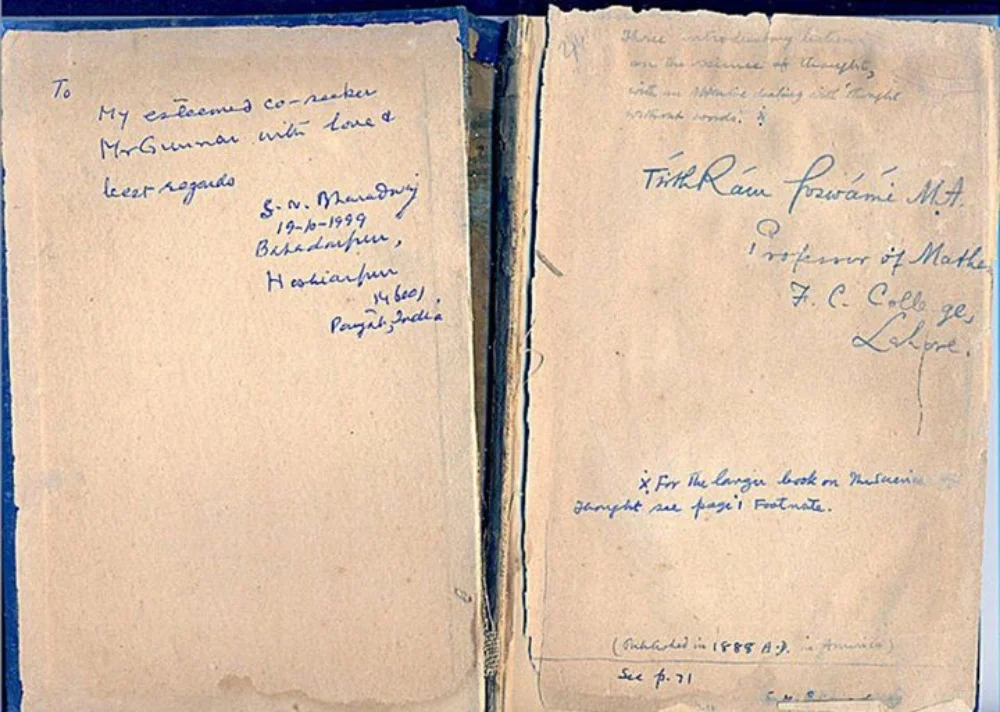 To
My esteemed co-seeker
Mr Gunnar with love &
best regards
S. N. Bharadwaj
19-10-1999
Bahadarpur,
Hoshiarpur
146001,
Punjab, India
Three introductory lectures
on the science of thought,
with an dealing with thought
without words. ⁜
TirthRám Goswámí M.A.
Professor of Mathe
F. C. College,
Lahore.
⁜ For the larger book on The Science of
Thought see page 1 Footnote.
(Published in 1888 A.D. in America)
See p. 71